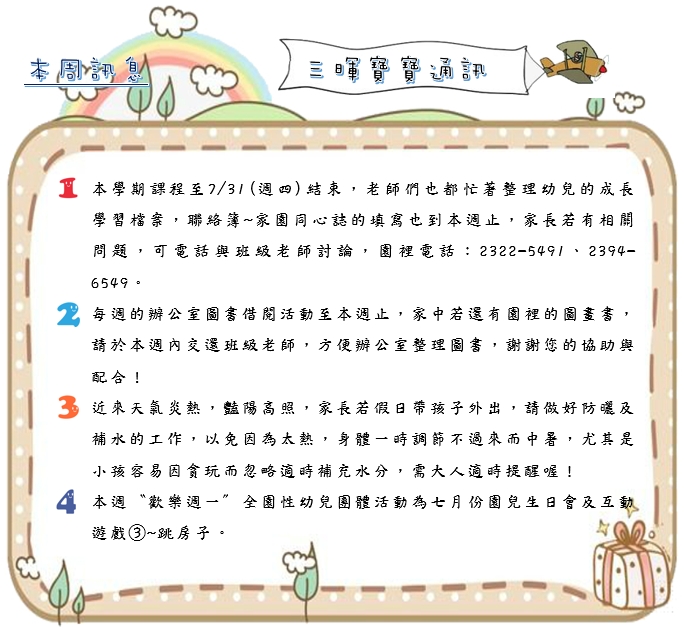 本周訊息
三暉寶寶通訊
1 本學期課程至7/31(週四)結束，老師們也都忙著整理幼兒的成長
學習檔案，聯絡簿~家園同心誌的填寫也到本週止，家長若有相關
問題，可電話與班級老師討論，園裡電話：2322-5491、2394-
6549。
2 每週的辦公室圖書借閱活動至本週止，家中若還有園裡的圖畫書，
請於本週內交還班級老師，方便辦公室整理圖書，謝謝您的協助與
配合！
3 近來天氣炎熱，豔陽高照，家長若假日帶孩子外出，請做好防曬及
補水的工作，以免因為太熱，身體一時調節不過來而中暑，尤其是
小孩容易因貪玩而忽略適時補充水分，需大人適時提醒喔！
4 本週〝歡樂週一〞全園性幼兒團體活動為七月份園兒生日會及互動
遊戲③~跳房子。